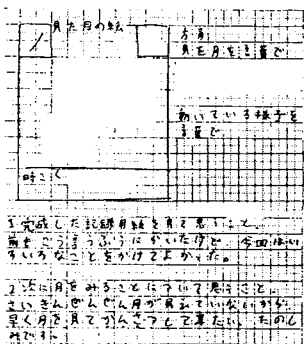 見た月の絵
方角
見た月を言葉で
動いている様子を
言葉で
時こく
1 完成した記録用紙を見て思うこと。
前もこういうふうにかいたけど、今回はい
ろいろなことをかけてよかった。
2 次に月をみることについて思うこと。
さいきんぜんぜん月が見えていないから
早く月を見てかんさつして車たい。たのし
みです。